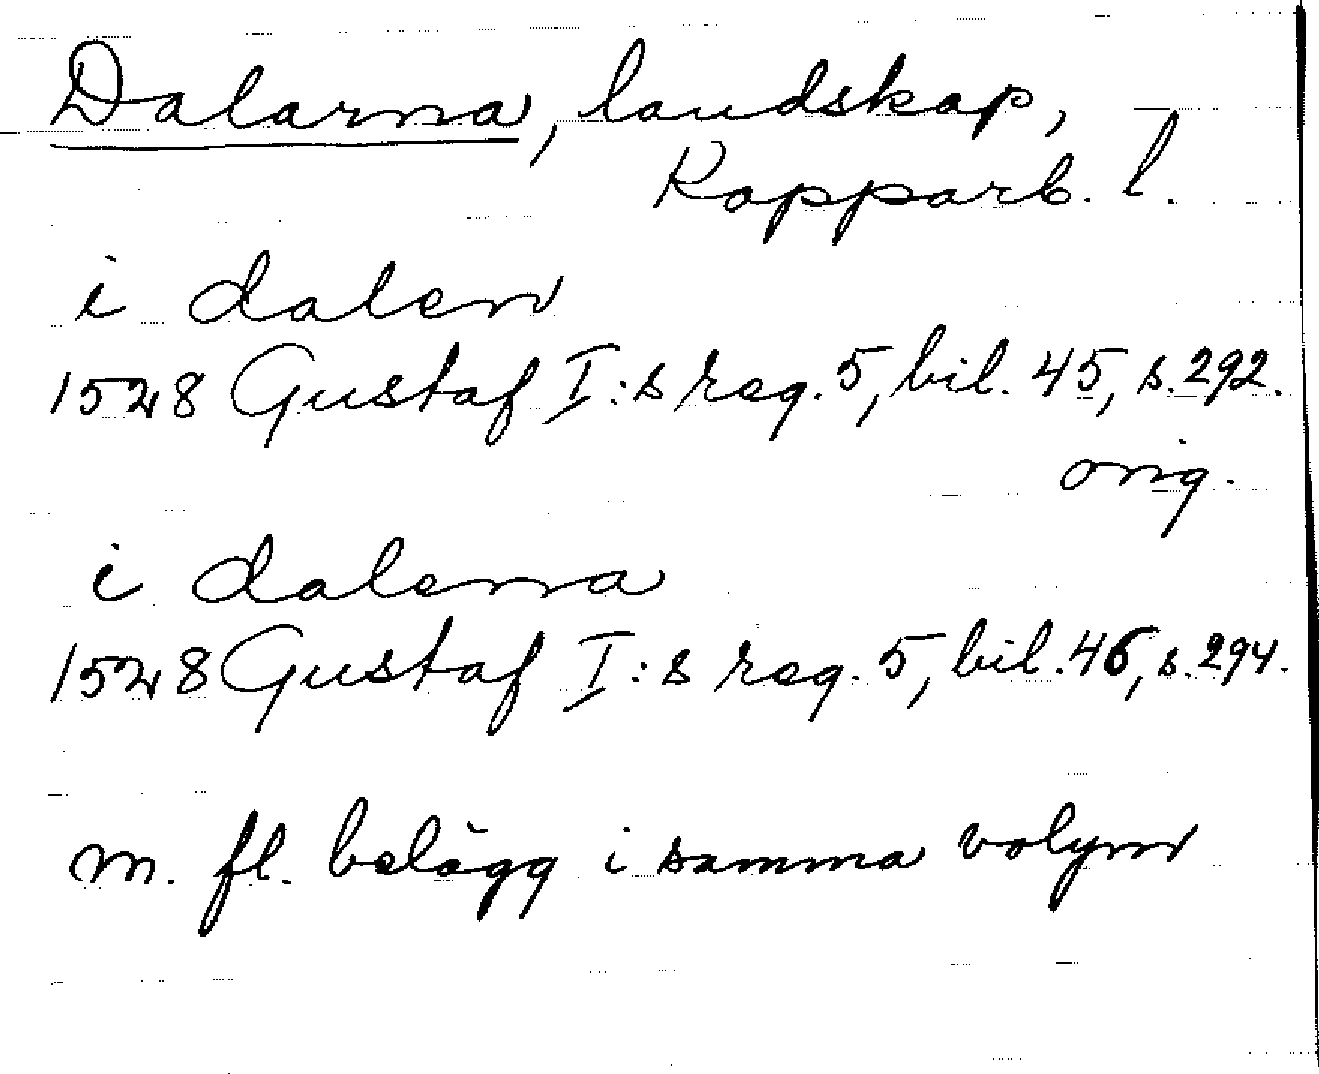 Dalarna, landskap,
Kopparb. l.
i dalen
1528 Gustaf I:s reg. 5, bil. 45, s. 292.
orig.
i dalerna
1528 Gustaf I:s reg. 5, bil. 46, s. 294.
m. fl. belägg i samma volym